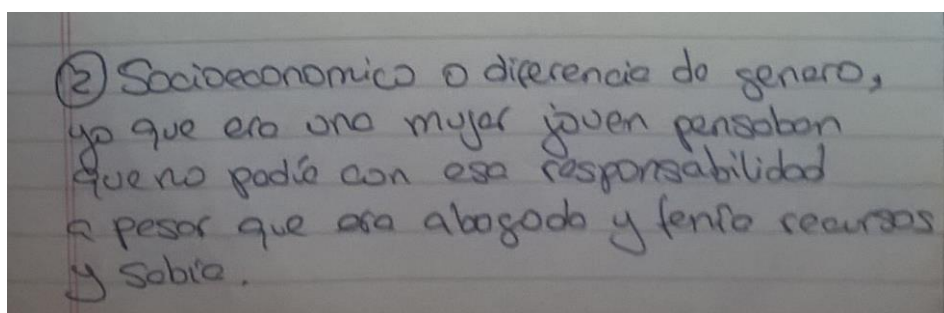 ② Socioeconomico o diferencia de genero,
ya que era una mujer joven pensaban
que no podía con esa responsabilidad
a pesar que era abogada y tenía recursos
y sabía.